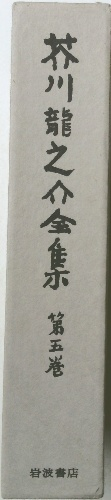 芥川龍之介全集
第五巻
岩波書店